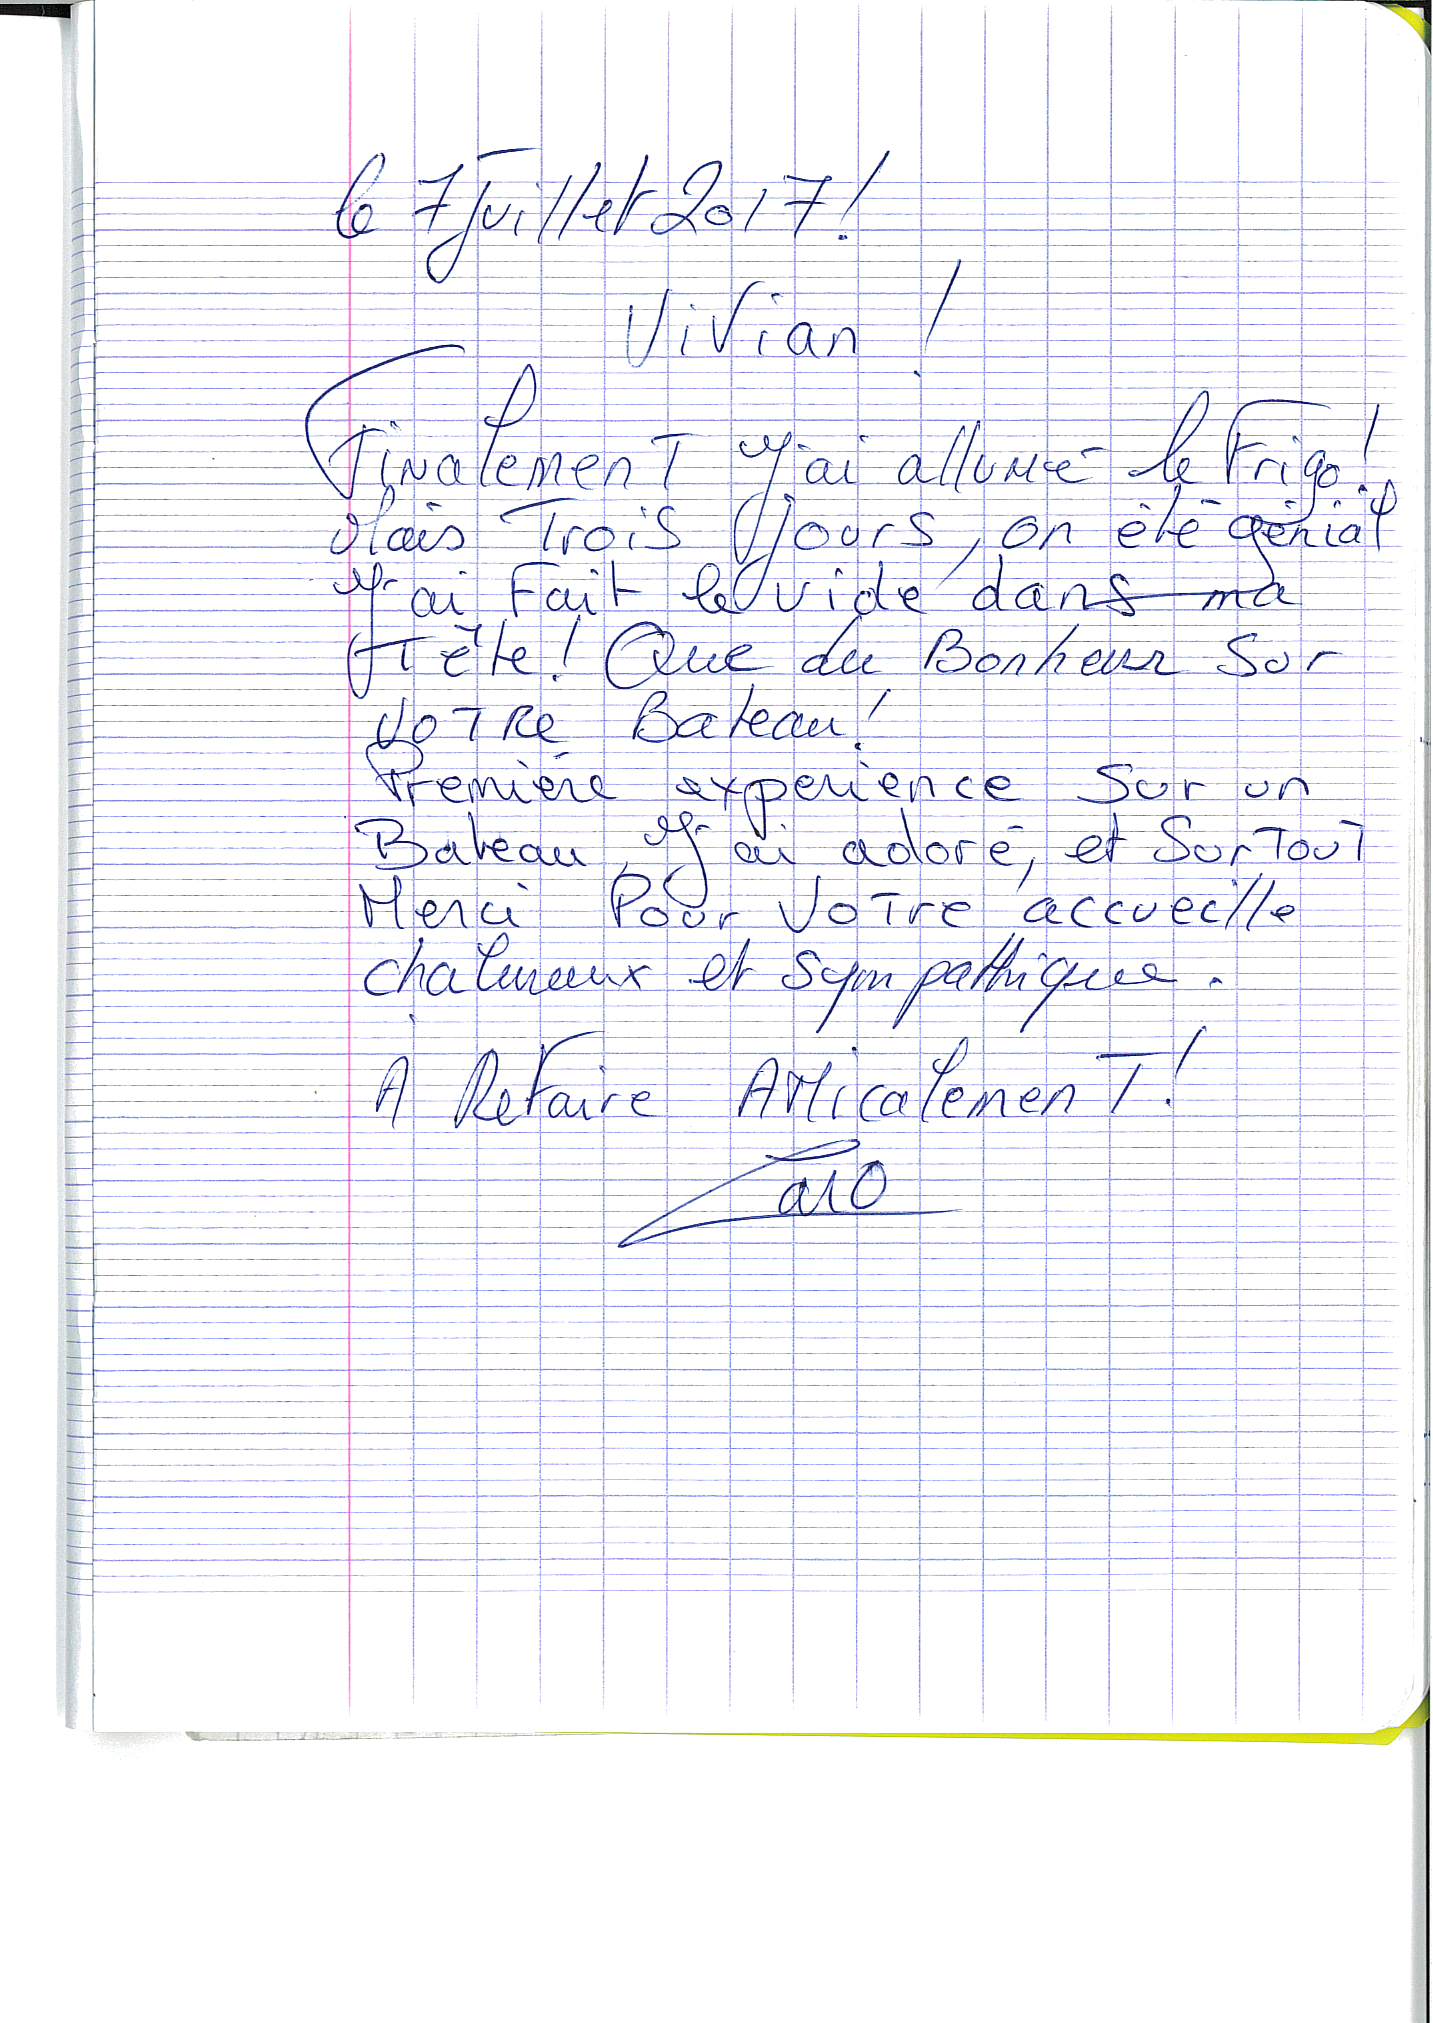 le 7 Juillet 2017!
Vivian!
Finalement J'ai allumé le Frigo!
Mais Trois Jours, on été génial
J'ai Fait le vide dans ma
Tête! Que du Bonheur Sur
VOTRE Bateau!
Première experience Sur un
Bateau, J'ai adoré, et SurTouT
Merci Pour VoTre accueille
chalureux et Sympathique.
A Refaire AMicalemenT!